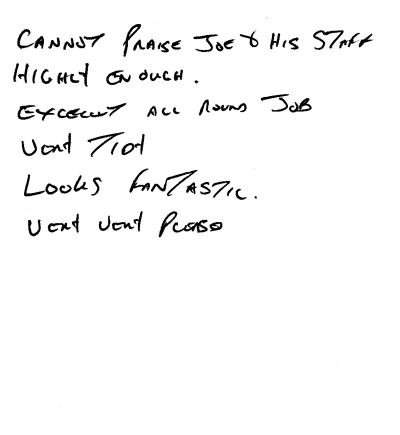 CANNOT PRAISE JOE & HIS STAFF
HIGHLY ENOUGH.
EXCELLENT ALL ROUND JOB
VERY TIDY
LOOKS FANTASTIC.
VERY VERY PLEASED